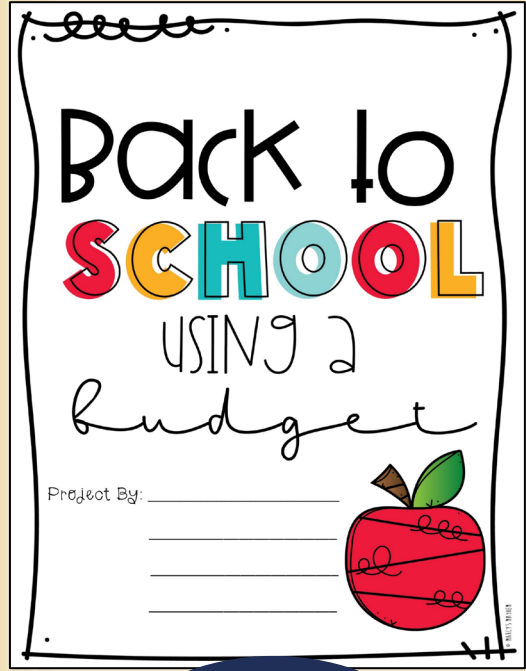 Back to
SCHOOL
USING a
budget
Project By: